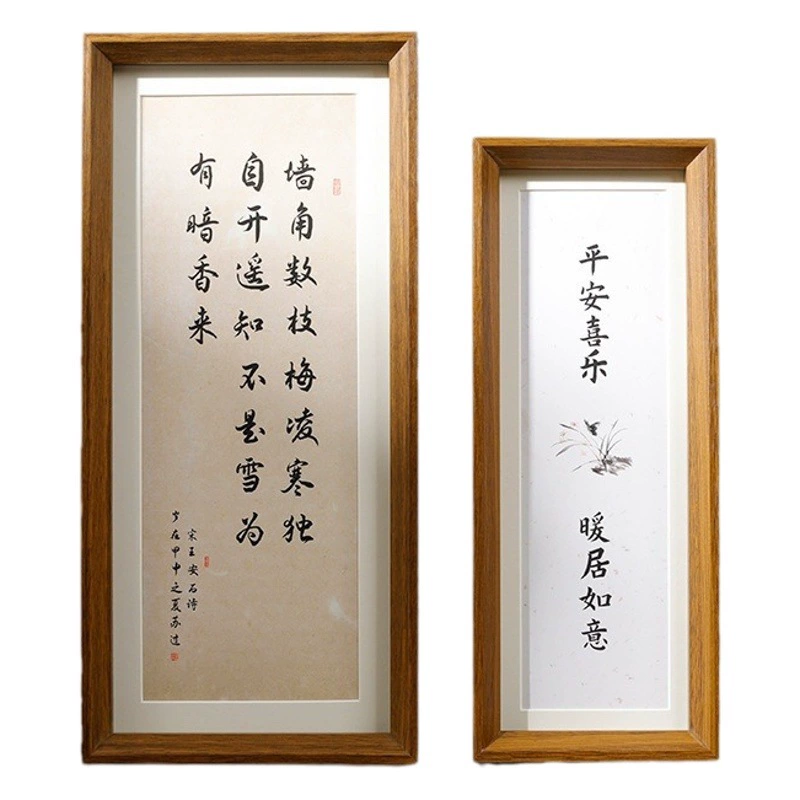 墙角数枝梅凌寒独
自开遥知不是雪为
有暗香来
宋王安石诗
岁在甲申之夏苏过
平安喜乐
暖居如意